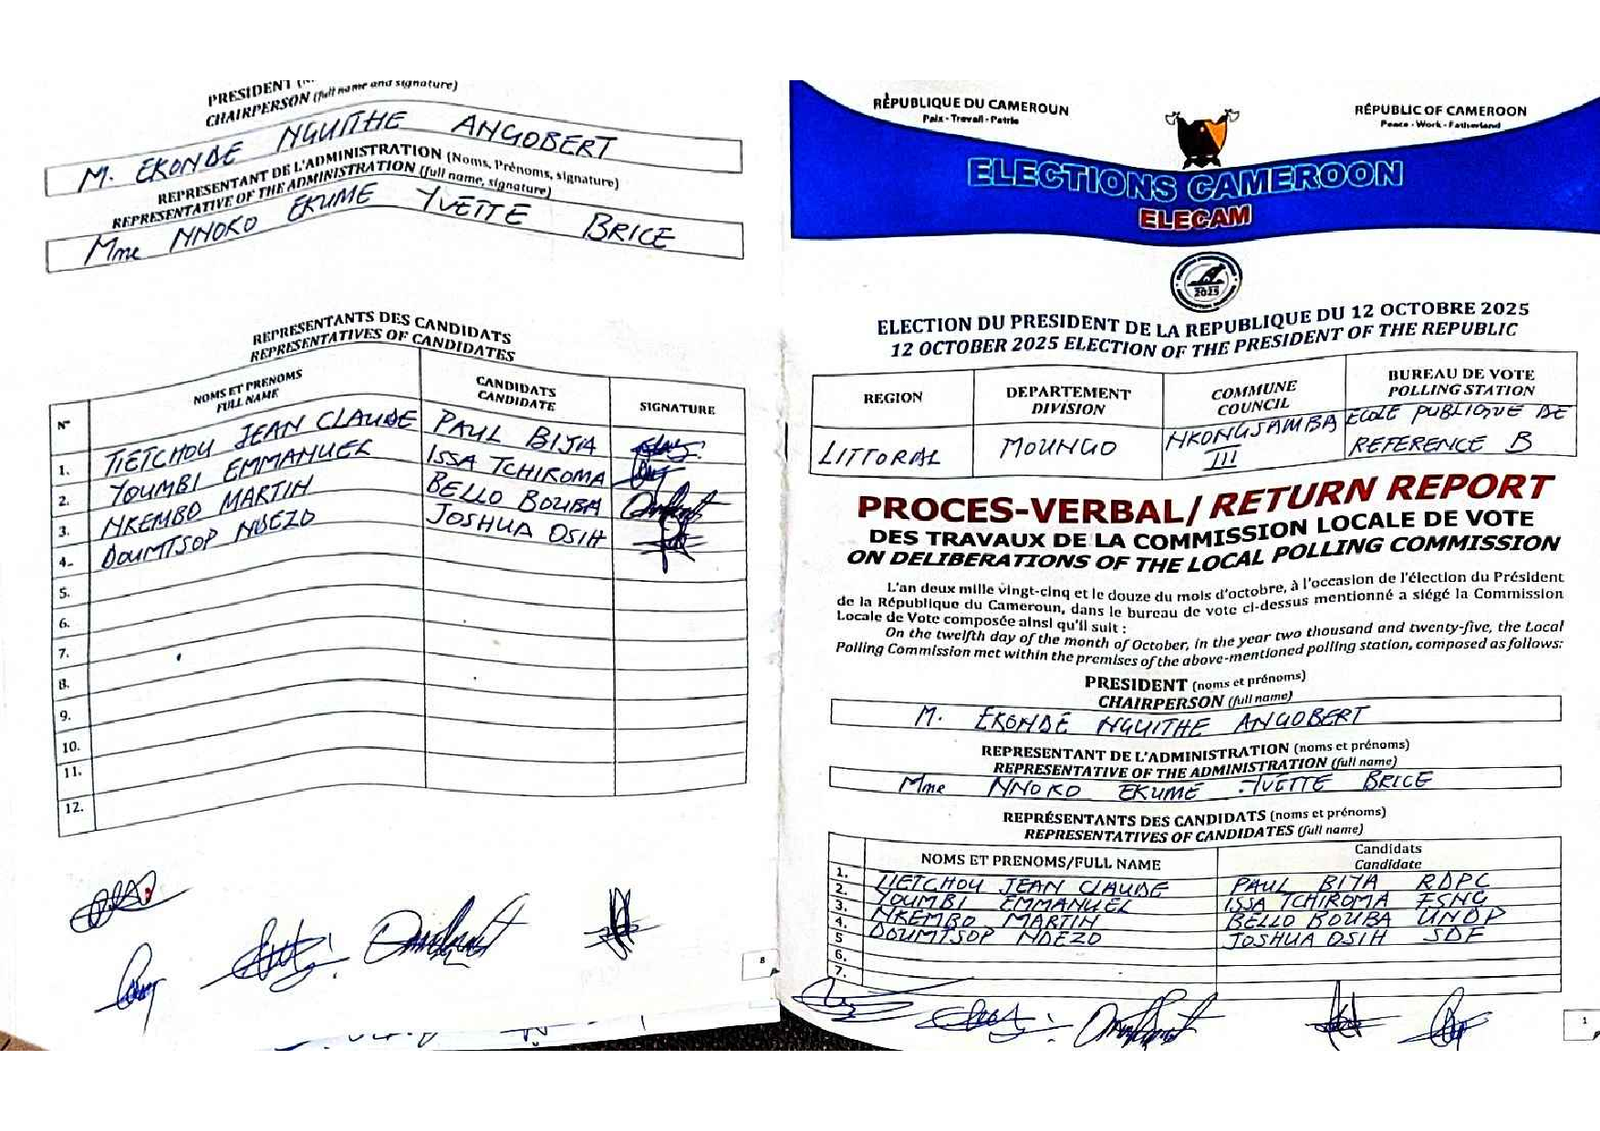 PRESIDENT
CHAIRPERSON (full name and signature)
M. EKONDE NGUITHE ANGOBERT
REPRESENTANT DE L'ADMINISTRATION (Noms, Prénoms, signature)
REPRESENTATIVE OF THE ADMINISTRATION (full name, signature)
Mme NNOKO EKUME YVETTE BRICE
REPRESENTANTS DES CANDIDATS
REPRESENTATIVES OF CANDIDATES
N° NOMS ET PRENOMS FULL NAME CANDIDATS CANDIDATE SIGNATURE
1. TIETCHOU JEAN CLAUDE PAUL BIYA
2. YOUMBI EMMANUEL ISSA TCHIROMA
3. NKEMBO MARTIN BELLO BOUBA
4. DOUMTSOP NDEZO JOSHUA OSIH
5.
6.
7.
8.
9.
10.
11.
12.
8
RÉPUBLIQUE DU CAMEROUN
Paix - Travail - Patrie
RÉPUBLIC OF CAMEROON
Peace - Work - Fatherland
ELECTIONS CAMEROON
ELECAM
2025
ELECTION DU PRESIDENT DE LA REPUBLIQUE DU 12 OCTOBRE 2025
12 OCTOBER 2025 ELECTION OF THE PRESIDENT OF THE REPUBLIC
REGION DEPARTEMENT DIVISION COMMUNE COUNCIL BUREAU DE VOTE POLLING STATION
LITTORAL MOUNGO NKONGSAMBA III ECOLE PUBLIQUE DE REFERENCE B
PROCES-VERBAL/ RETURN REPORT
DES TRAVAUX DE LA COMMISSION LOCALE DE VOTE
ON DELIBERATIONS OF THE LOCAL POLLING COMMISSION
L'an deux mille vingt-cinq et le douze du mois d'octobre, à l'occasion de l'élection du Président
de la République du Cameroun, dans le bureau de vote ci-dessus mentionné a siégé la Commission
Locale de Vote composée ainsi qu'il suit :
On the twelfth day of the month of October, in the year two thousand and twenty-five, the Local
Polling Commission met within the premises of the above-mentioned polling station, composed as follows:
PRESIDENT (noms et prénoms)
CHAIRPERSON (full name)
M. EKONDE NGUITHE ANGOBERT
REPRESENTANT DE L'ADMINISTRATION (noms et prénoms)
REPRESENTATIVE OF THE ADMINISTRATION (full name)
Mme NNOKO EKUME YVETTE BRICE
REPRÉSENTANTS DES CANDIDATS (noms et prénoms)
REPRESENTATIVES OF CANDIDATES (full name)
NOMS ET PRENOMS/FULL NAME Candidats Candidate
1. TIETCHOU JEAN CLAUDE PAUL BIYA RDPC
2. YOUMBI EMMANUEL ISSA TCHIROMA FSNC
3. NKEMBO MARTIN BELLO BOUBA UNDP
4. DOUMTSOP NDEZO JOSHUA OSIH SDF
5
6.
7.
1